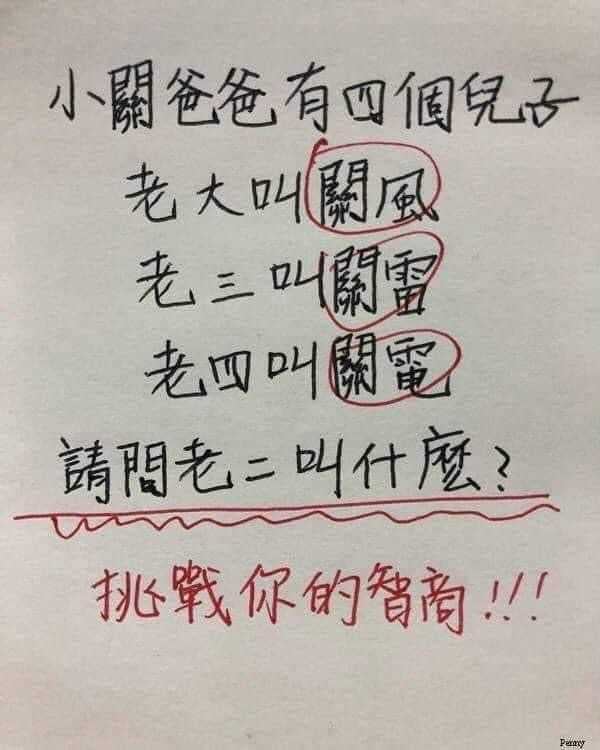 小關爸爸有四個兒子
老大叫關風
老三叫關雷
老四叫關電
請問老二叫什麼?
挑戰你的智商!!!
Penny